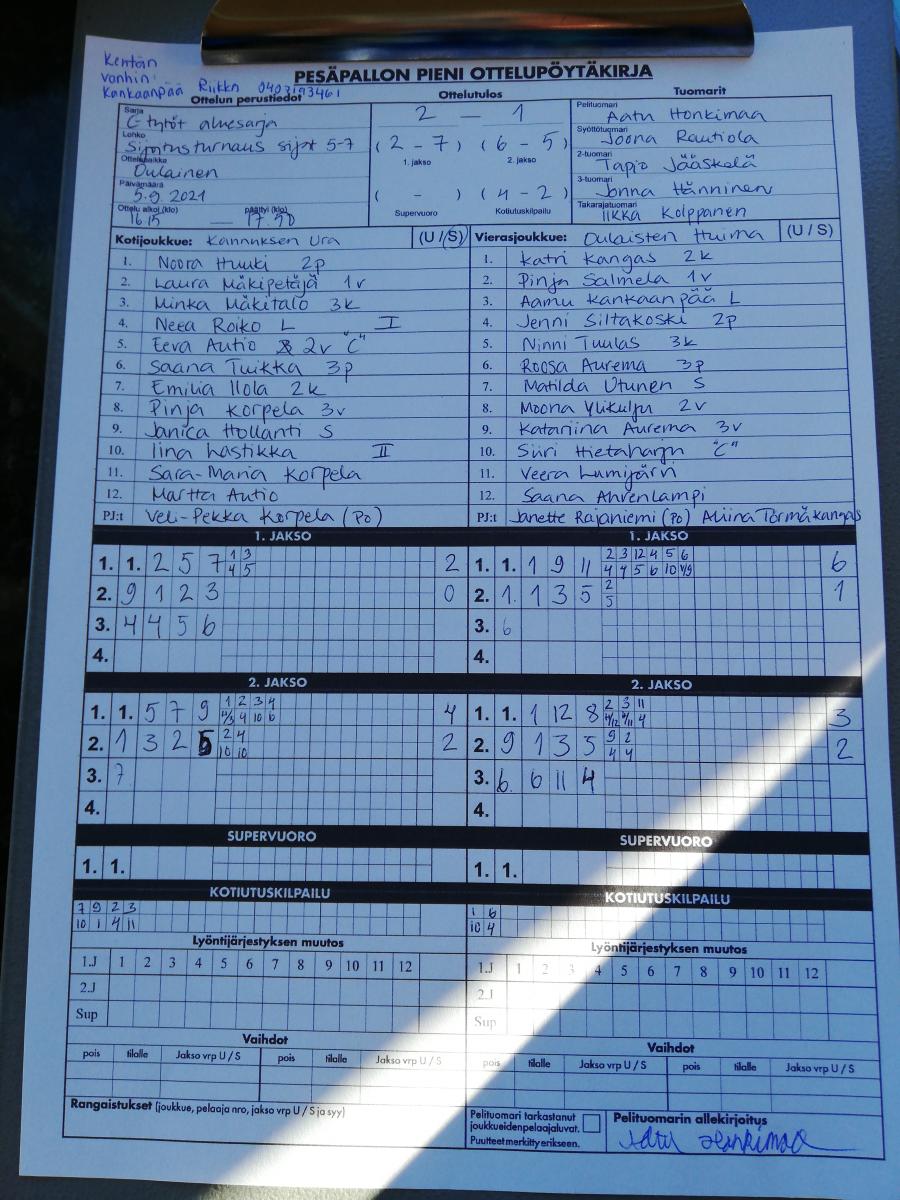 Kentän
vanhin
Kankaanpää Riikka 0403193461
PESÄPALLON PIENI OTTELUPÖYTÄKIRJA
Ottelun perustiedot Ottelutulos Tuomarit
Sarja
C-tytöt aluesarja
Lohko
Sijoitusturnaus sijat 5-7
Ottelupaikka
Oulainen
Päivämäärä
5.9.2021
Ottelu alkoi (klo) päättyi (klo)
16.15 — 17.50
2 — 1
(2 - 7) (6 - 5)
1. jakso 2. jakso
( - ) (4 - 2)
Supervuoro Kotiutuskilpailu
Pelituomari
Aatu Honkimaa
Syöttötuomari
Joona Rautiola
2-tuomari
Tapio Jääskelä
3-tuomari
Jonna Hänninen
Takarajatuomari
Iikka Kolppanen
Kotijoukkue: Kannuksen Ura (U / S)
1. Noora Huuki 2p
2. Laura Mäkipetäjä 1v
3. Minka Mäkitalo 3k
4. Neea Roiko L I
5. Eeva Autio 2v "C"
6. Saana Tuikka 3p
7. Emilia Ilola 2k
8. Pinja Korpela 3v
9. Janica Hollanti S
10. Iina Lastikka II
11. Sara-Maria Korpela
12. Martta Autio
PJ:t Veli-Pekka Korpela (Po)
Vierasjoukkue: Oulaisten Huima (U / S)
1. Katri Kangas 2k
2. Pinja Salmela 1v
3. Aamu Kankaanpää L
4. Jenni Siltakoski 2p
5. Ninni Tuulas 3k
6. Roosa Aurema 3p
7. Matilda Utunen S
8. Moona Ylikulju 2v
9. Katariina Aurema 3v
10. Siiri Hietaharju "C"
11. Veera Lumijärvi
12. Saana Ahrenlampi
PJ:t Janette Rajaniemi (Po) Aliina Törmäkangas
1. JAKSO
1. 1. 2 5 7 1 3 2
4 5
2. 9 1 2 3 0
3. 4 4 5 6
4.
1. JAKSO
1. 1. 1 9 11 2 3 12 4 5 6 6
4 4 5 6 10 4/9
2. 1. 1 3 5 2 1
5
3. 6
4.
2. JAKSO
1. 1. 5 7 9 1 2 3 4 4
11/3 4 10 6
2. 1 3 2 5 2 4 2
10 10
3. 7
4.
2. JAKSO
1. 1. 1 12 8 2 3 11 3
4/12 4/11 4
2. 9 1 3 5 9 2 2
4 4
3. 6. 6 11 4
4.
SUPERVUORO
1. 1.
SUPERVUORO
1. 1.
KOTIUTUSKILPAILU
7 9 2 3
10 1 4 11
KOTIUTUSKILPAILU
1 6
10 4
Lyöntijärjestyksen muutos
1.J 1 2 3 4 5 6 7 8 9 10 11 12
2.J
Sup
Lyöntijärjestyksen muutos
1.J 1 2 3 4 5 6 7 8 9 10 11 12
2.J
Sup
Vaihdot
pois tilalle Jakso vrp U / S pois tilalle Jakso vrp U / S
Vaihdot
pois tilalle Jakso vrp U / S pois tilalle Jakso vrp U / S
Rangaistukset (joukkue, pelaaja nro, jakso vrp U / S ja syy)
Pelituomari tarkastanut
joukkueidenpelaajaluvat.
Puutteet merkitty erikseen.
Pelituomarin allekirjoitus
Aatu Honkimaa